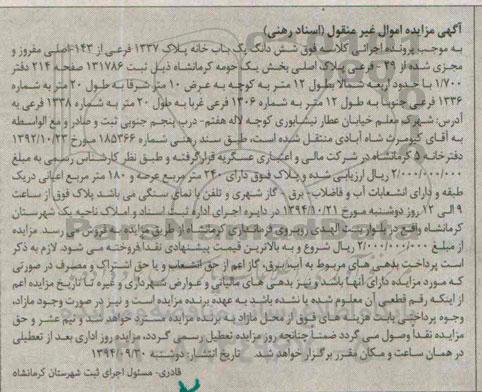 آگهی مزایده اموال غیر منقول (اسناد رهنی)
به موجب پرونده اجرائی کلاسه فوق شش دانگ یک باب خانه پلاک ۱۳۳۷ فرعی از ۱۴۳-اصلی مفروز و
مجزی شده از ۲۹ - فرعی پلاک اصلی بخش یک حومه کرمانشاه ذیل ثبت ۱۳۱۷۸۶ صفحه ۲۱۴ دفتر
۱/۷۰۰ با حدود اربعه شمالا بطول ۱۲ متر به کوچه به عرض ۱۰ متر شرقا به طول ۲۰ متر به شماره
۱۳۳۶ فرعی جنوبا به طول ۱۲ متر به شماره ۱۳۰۶ فرعی غربا به طول ۲۰ متر به شماره ۱۳۳۸ فرعی به
آدرس: شهرک معلم خیابان عطار نیشابوری کوچه لاله هفتم- درب پنجم جنوبی ثبت و صادر و مع الواسطه
به آقای کیومرث شاه آبادی منتقل شده است، طبق سند رهنی شماره ۱۸۵۳۶۶ مورخ ۱۳۹۲/۱۰/۲۳
دفترخانه ۵ کرمانشاه در شرکت مالی و اعتباری عسگریه قرار گرفته و طبق نظر کارشناس رسمی به مبلغ
۲/۰۰۰/۰۰۰/۰۰۰ ریال ارزیابی شده و پلاک فوق دارای ۲۴۰ متر مربع عرصه و ۱۸۰ متر مربع اعیانی در یک
طبقه و دارای انشعابات آب و فاضلاب- برق - گاز شهری و تلفن با نمای سنگی می باشد پلاک فوق از ساعت
۹ الی ۱۲ روز دوشنبه مورخ ۱۳۹۴/۱۰/۲۱ در دایره اجرای اداره ثبت اسناد و املاک ناحیه یک شهرستان
کرمانشاه واقع در بلوار بنت الهدی روبروی فرمانداری کرمانشاه از طریق مزایده به فروش می رسد. مزایده
از مبلغ ۲/۰۰۰/۰۰۰/۰۰۰ ریال شروع و به بالاترین قیمت پیشنهادی نقدا فروخته می شود. لازم به ذکر
است پرداخت بدهی های مربوط به آب، برق، گاز اعم از حق انشعاب و یا حق اشتراک و مصرف در صورتی
که مورد مزایده دارای آنها باشد و نیز بدهی های مالیاتی و عوارض شهرداری و غیره تا تاریخ مزایده اعم
از اینکه رقم قطعی آن معلوم شده یا نشده باشد به عهده برنده مزایده است و نیز در صورت وجود مازاد،
وجوه پرداختی بابت هزینه های فوق از محل مازاد به برنده مزایده مسترد خواهد شد و نیم عشر و حق
مزایده نقدا وصول می گردد ضمنا چنانچه روز مزایده تعطیل رسمی گردد، مزایده روز اداری بعد از تعطیلی
در همان ساعت و مکان مقرر برگزار خواهد شد. تاریخ انتشار: دوشنبه ۱۳۹۴/۰۹/۳۰
قادری- مسئول اجرای ثبت شهرستان کرمانشاه